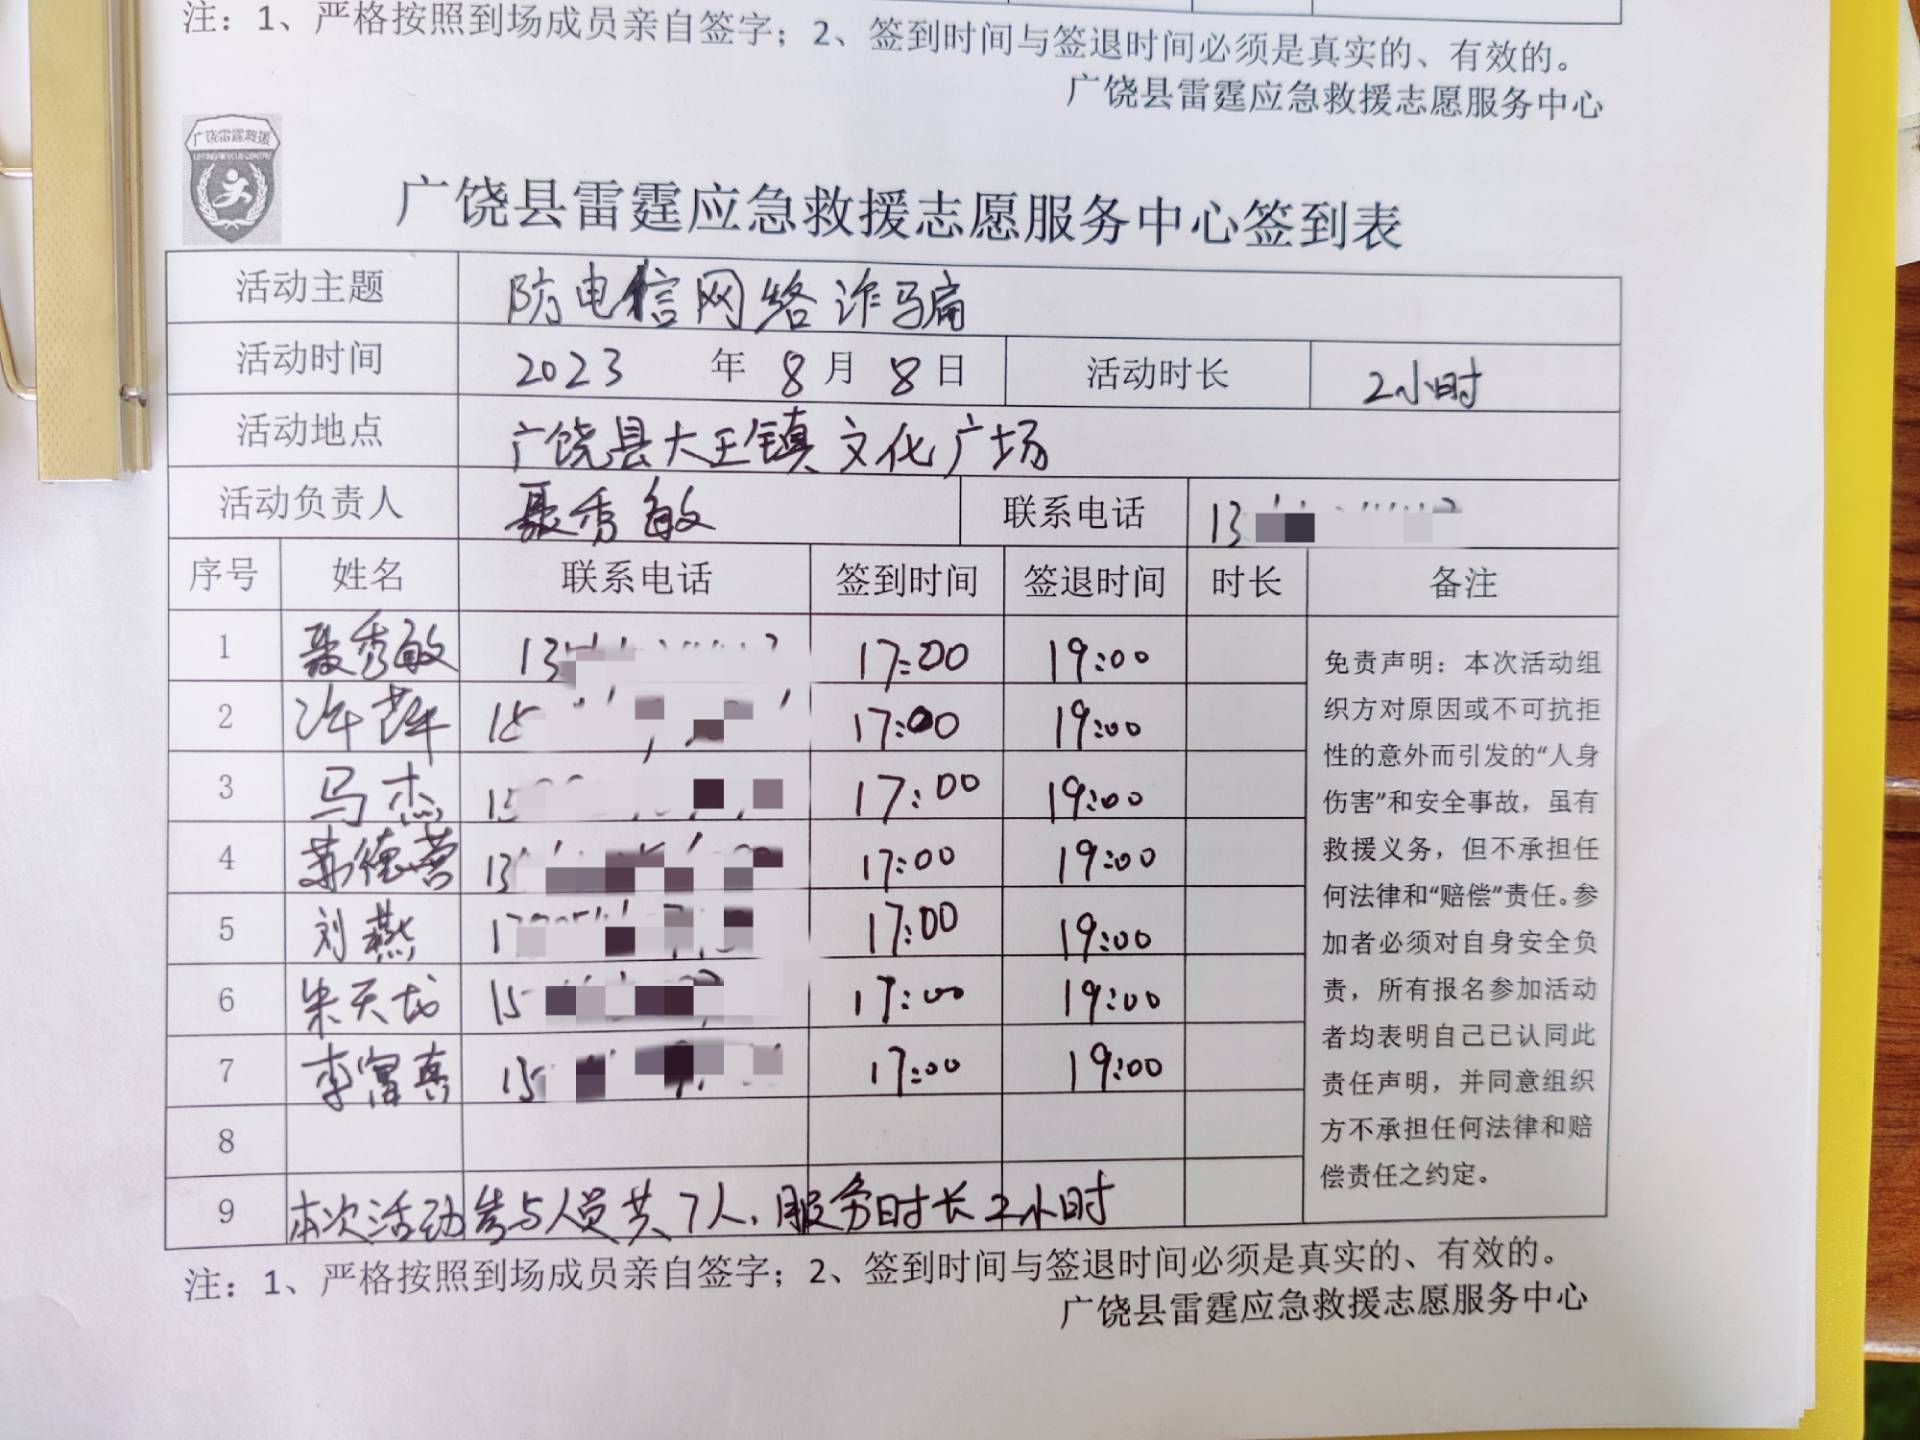 注：1、严格按照到场成员亲自签字；2、签到时间与签退时间必须是真实的、有效的。
广饶县雷霆应急救援志愿服务中心
广饶雷霆救援
广饶县雷霆应急救援志愿服务中心签到表
活动主题 防电信网络诈骗
活动时间 2023 年 8 月 8 日 活动时长 2小时
活动地点 广饶县大王镇文化广场
活动负责人 聂秀敏 联系电话 13
序号 姓名 联系电话 签到时间 签退时间 时长 备注
1 聂秀敏 13 17:00 19:00
2 许萍 15 17:00 19:00
3 马杰 15 17:00 19:00
4 德营 13 17:00 19:00
5 刘燕 1 17:00 19:00
6 朱天龙 15 17:00 19:00
7 李富真 15 17:00 19:00
8
9 本次活动参与人员共7人，服务时长2小时
免责声明：本次活动组
织方对原因或不可抗拒
性的意外而引发的“人身
伤害”和安全事故，虽有
救援义务，但不承担任
何法律和“赔偿”责任。参
加者必须对自身安全负
责，所有报名参加活动
者均表明自己已认同此
责任声明，并同意组织
方不承担任何法律和赔
偿责任之约定。
注：1、严格按照到场成员亲自签字；2、签到时间与签退时间必须是真实的、有效的。
广饶县雷霆应急救援志愿服务中心